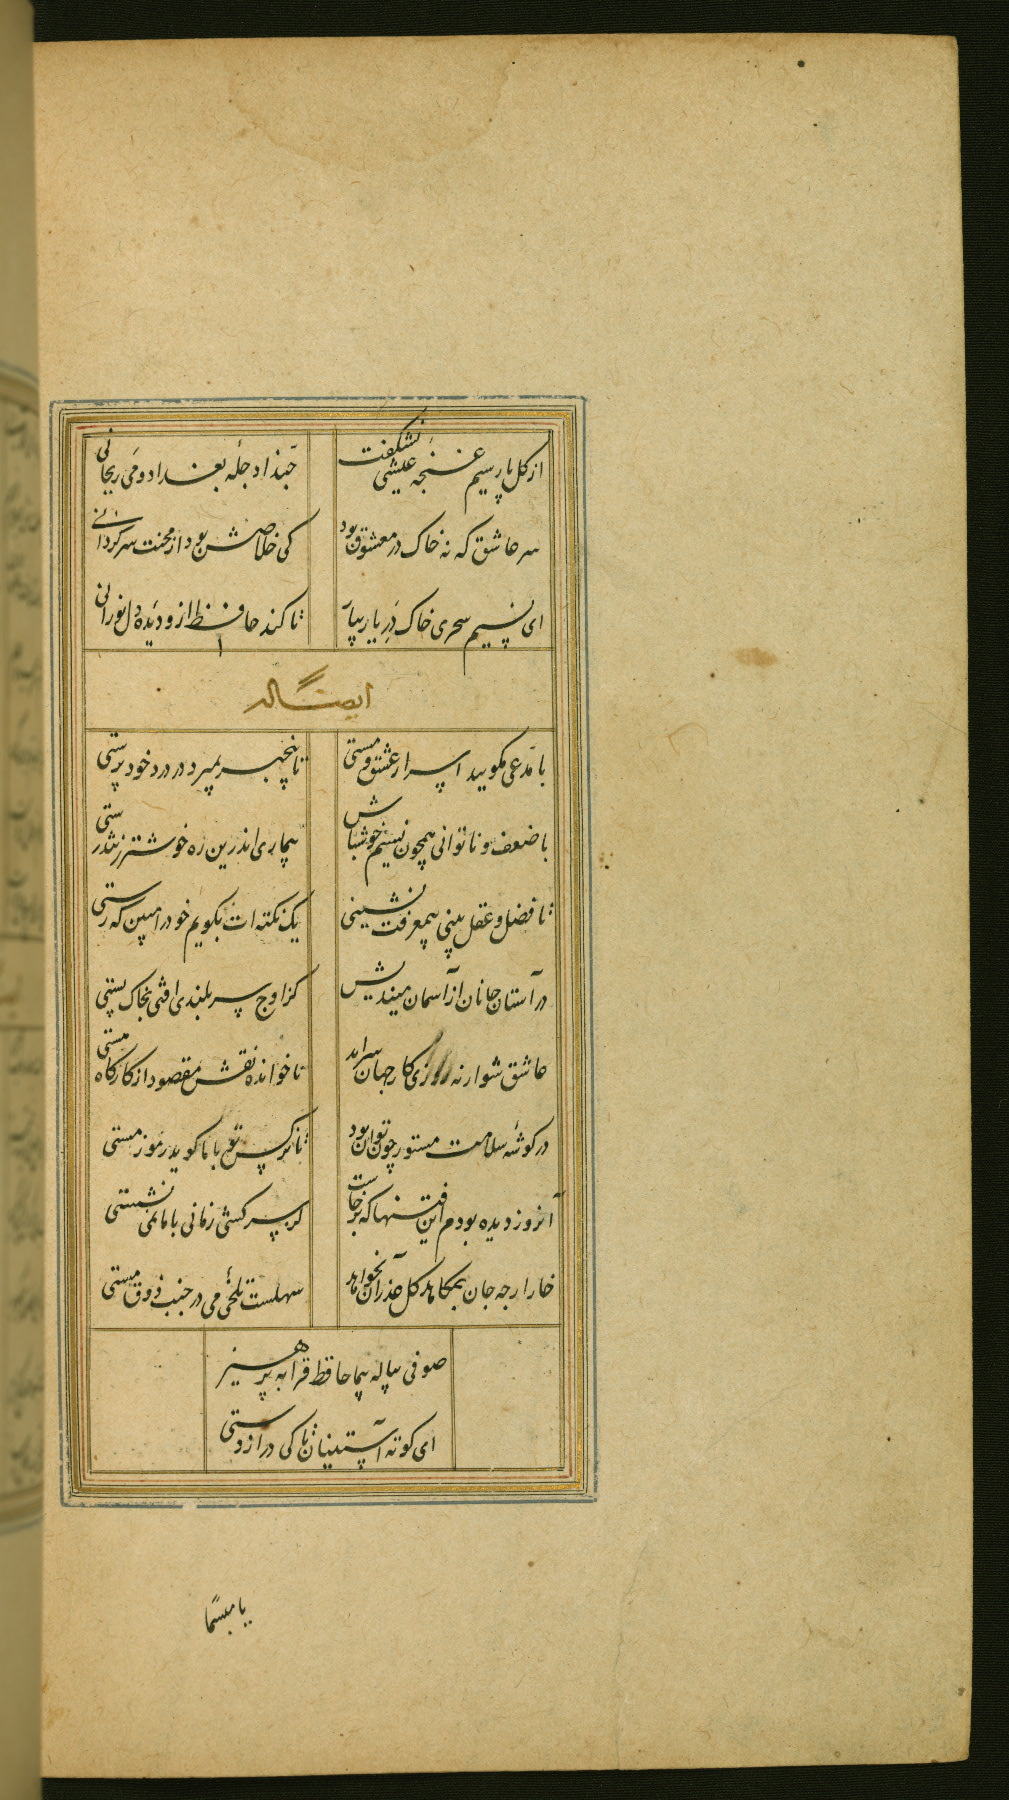 از کل پارسیم غنجه عیشی نشکفت
حبذا دجله بغداد و می ریحانی
سر عاشق که نه خاک در معشوق بود
کی خلاصش بود از محنت سر کردانی
ای نسیم سحری خاک در یار بیار
تا کند حافظ ازو دیده دل نورانی
ایضاله
با مدعی مکویید اسرار عشق و مستی
تا بیخبر بمیرد در درد خود پرستی
با ضعف و ناتوانی همچون نسیم خوشباش
بیماری اندرین ره خوشتر ز تندرستی
تا فضل و عقل بینی بیمعرفت نشینی
یک نکته ات بکویم خود را مبین که رستی
در آستان جانان از آسمان میندیش
کز اوج سربلندی افتی بخاک پستی
عاشق شو ار نه روزی کار جهان سراید
ناخوانده نقش مقصود از کارکاه هستی
در کوشه سلامت مستور چون توان بود
تا نرکس تو با ما کوید رموز مستی
آنروز دیده بودم این فتنها که برخاست
کز سرکشی زمانی با ما نمی نشستی
خار ارچه جان بکاهد کل عذر آن بخواهد
سهلست تلخی می در جنب ذوق مستی
صوفی پیاله پیما حافظ قرابه پرهیز
ای کوته آستینان تا کی درازدستی